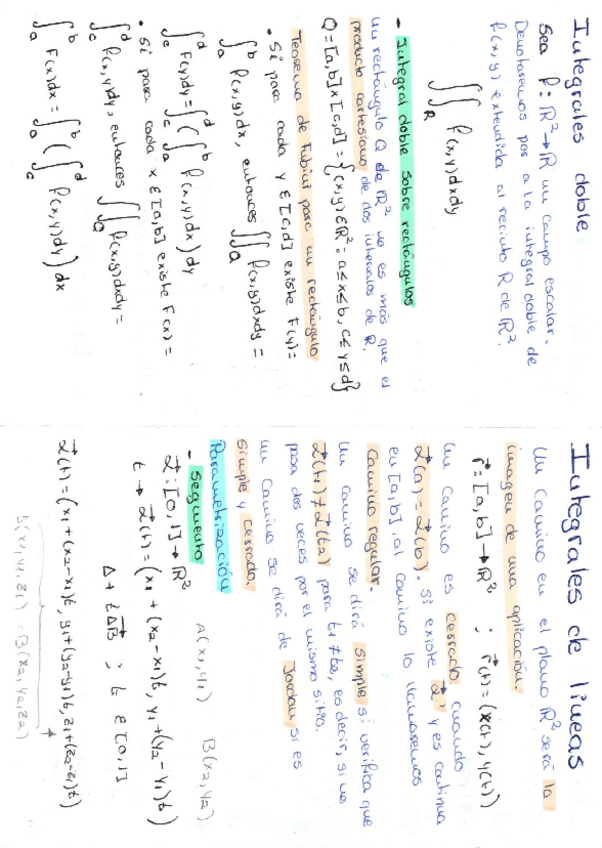 Integrales doble
Sea f: ℝ² → ℝ un campo escalar.
Denotaremos por a la integral doble de
f(x,y) extendida al recinto R de ℝ².
∫∫_R f(x,y)dxdy
- Integral doble sobre rectángulos
Un rectángulo Q de ℝ² no es más que el
producto cartesiano de dos intervalos de ℝ.
Q = [a,b] x [c,d] = {(x,y) ∈ ℝ² = a ≤ x ≤ b, c ≤ y ≤ d}
Teorema de Fubini para un rectángulo
• Si para cada y ∈ [c,d] existe F(y) =
∫_a^b f(x,y)dx, entonces ∫∫_Q f(x,y)dxdy =
∫_c^d F(y)dy = ∫_c^d (∫_a^b f(x,y)dx) dy
• Si para cada x ∈ [a,b] existe F(x) =
∫_c^d f(x,y)dy, entonces ∫∫_Q f(x,y)dxdy =
∫_a^b F(x)dx = ∫_a^b (∫_c^d f(x,y)dy) dx
Integrales de líneas
Un camino en el plano ℝ² será la
imagen de una aplicación.
r⃗: [a,b] → ℝ² ; r⃗(t) = (x(t), y(t))
Un camino es cerrado cuando
α⃗(a) = α⃗(b). Si existe α⃗' y es continua
en [a,b], al camino lo llamaremos
Camino regular.
Un camino se dirá simple si verifica que
α⃗(t1) ≠ α⃗(t2) para t1 ≠ t2, es decir, si no
pasa dos veces por el mismo sitio.
Un camino se dirá de Jordan si es
simple y cerrado.
Parametrización
- Segmento A(x1,y1) B(x2,y2)
α⃗: [0,1] → ℝ²
t → α⃗(t) = (x1 + (x2-x1)t, y1 + (y2-y1)t)
A + tAB⃗ ; t ∈ [0,1]
α⃗(t) = (x1 + (x2-x1)t, y1 + (y2-y1)t, z1 + (z2-z1)t)
A(x1,y1,z1) , B(x2,y2,z2)